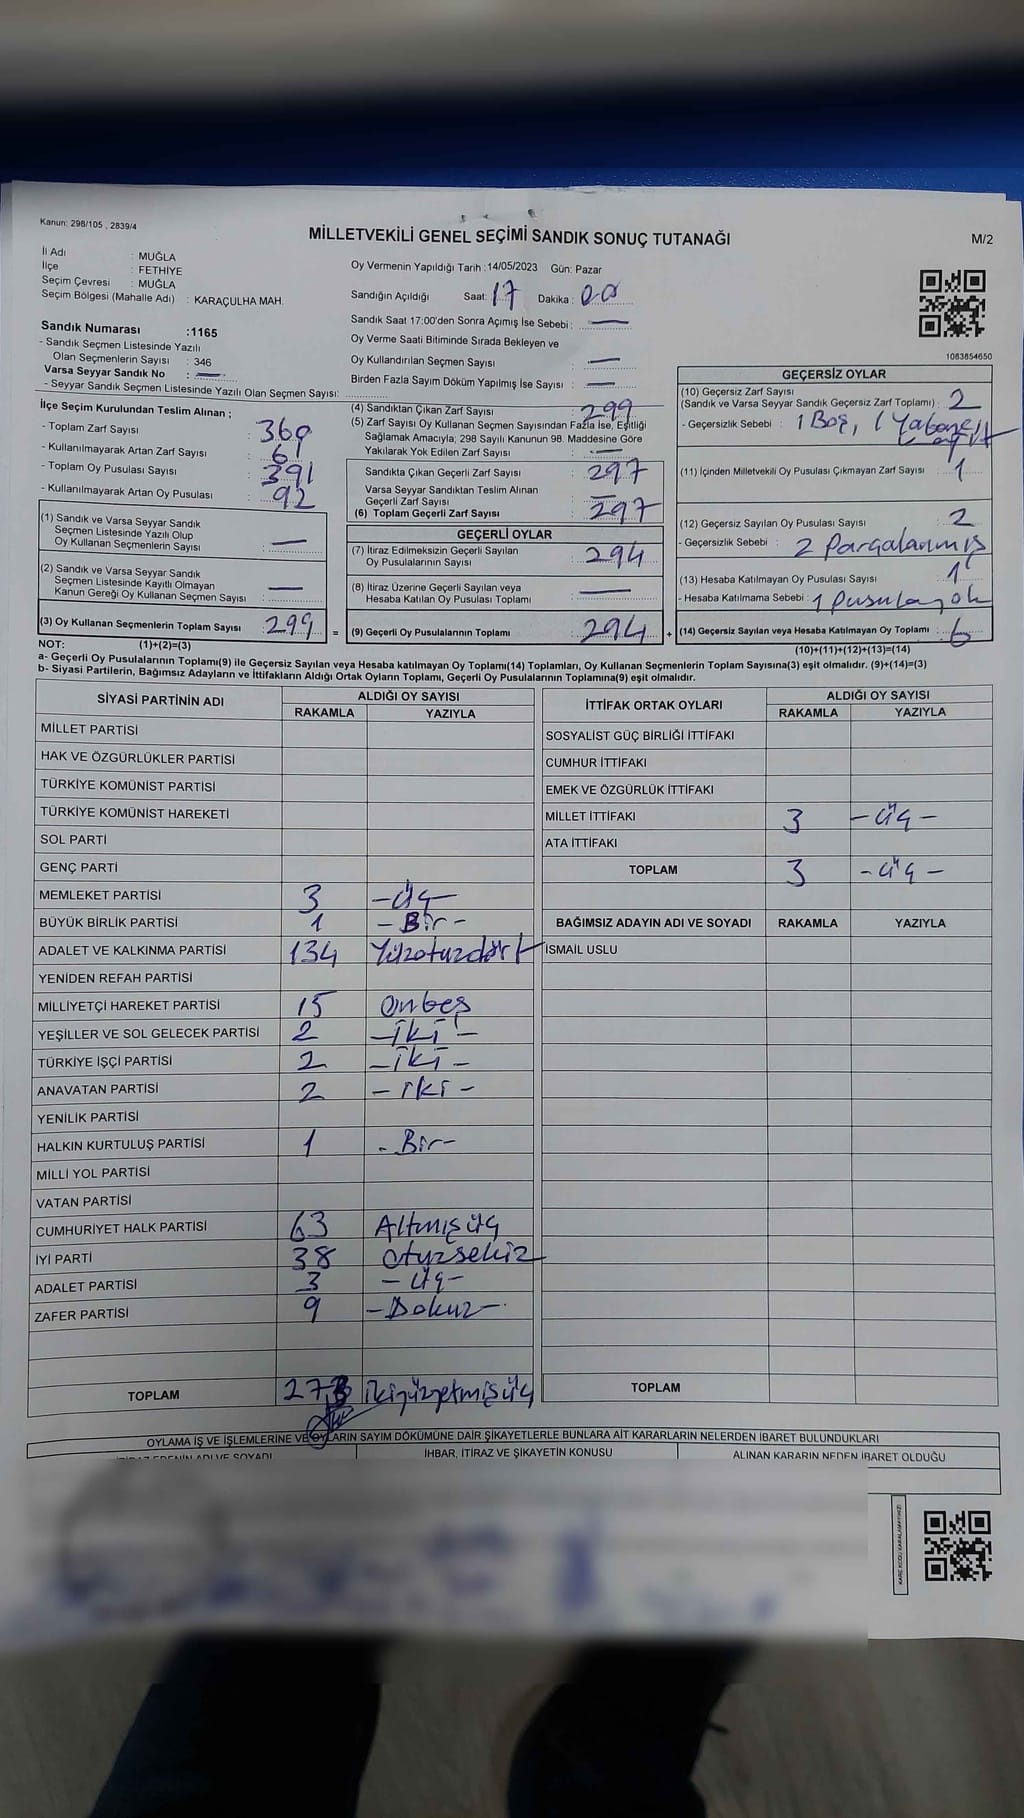 Kanun: 298/105 , 2839/4
MİLLETVEKİLİ GENEL SEÇİMİ SANDIK SONUÇ TUTANAĞI
M/2
İl Adı : MUĞLA
İlçe : FETHİYE
Seçim Çevresi : MUĞLA
Seçim Bölgesi (Mahalle Adı) : KARAÇULHA MAH.
Sandık Numarası :1165
- Sandık Seçmen Listesinde Yazılı
Olan Seçmenlerin Sayısı : 346
Varsa Seyyar Sandık No : —
- Seyyar Sandık Seçmen Listesinde Yazılı Olan Seçmen Sayısı:
Oy Vermenin Yapıldığı Tarih :14/05/2023 Gün: Pazar
Sandığın Açıldığı Saat: 17 Dakika : 00
Sandık Saat 17:00'den Sonra Açımış İse Sebebi : —
Oy Verme Saati Bitiminde Sırada Bekleyen ve
Oy Kullandırılan Seçmen Sayısı : —
Birden Fazla Sayım Döküm Yapılmış İse Sayısı : —
1083854650
İlçe Seçim Kurulundan Teslim Alınan ;
- Toplam Zarf Sayısı : 360
- Kullanılmayarak Artan Zarf Sayısı : 61
- Toplam Oy Pusulası Sayısı : 391
- Kullanılmayarak Artan Oy Pusulası : 92
(1) Sandık ve Varsa Seyyar Sandık
Seçmen Listesinde Yazılı Olup
Oy Kullanan Seçmenlerin Sayısı : —
(2) Sandık ve Varsa Seyyar Sandık
Seçmen Listesinde Kayıtlı Olmayan
Kanun Gereği Oy Kullanan Seçmen Sayısı : —
(3) Oy Kullanan Seçmenlerin Toplam Sayısı : 299 =
(4) Sandıktan Çıkan Zarf Sayısı : 299
(5) Zarf Sayısı Oy Kullanan Seçmen Sayısından Fazla İse, Eşitliği
Sağlamak Amacıyla; 298 Sayılı Kanunun 98. Maddesine Göre
Yakılarak Yok Edilen Zarf Sayısı : —
Sandıkta Çıkan Geçerli Zarf Sayısı : 297
Varsa Seyyar Sandıktan Teslim Alınan
Geçerli Zarf Sayısı : —
(6) Toplam Geçerli Zarf Sayısı : 297
GEÇERLİ OYLAR
(7) İtiraz Edilmeksizin Geçerli Sayılan
Oy Pusulalarının Sayısı : 294
(8) İtiraz Üzerine Geçerli Sayılan veya
Hesaba Katılan Oy Pusulası Toplamı : —
(9) Geçerli Oy Pusulalarının Toplamı : 294 +
GEÇERSİZ OYLAR
(10) Geçersiz Zarf Sayısı
(Sandık ve Varsa Seyyar Sandık Geçersiz Zarf Toplamı) : 2
- Geçersizlik Sebebi : 1 Boş, 1 Yabancı
(11) İçinden Milletvekili Oy Pusulası Çıkmayan Zarf Sayısı : 1
(12) Geçersiz Sayılan Oy Pusulası Sayısı : 2
- Geçersizlik Sebebi : 2 Parçalanmış
(13) Hesaba Katılmayan Oy Pusulası Sayısı : 1
- Hesaba Katılmama Sebebi : 1 pusula yok
(14) Geçersiz Sayılan veya Hesaba Katılmayan Oy Toplamı : 6
NOT: (1)+(2)=(3)
(10)+(11)+(12)+(13)=(14)
a- Geçerli Oy Pusulalarının Toplamı(9) ile Geçersiz Sayılan veya Hesaba katılmayan Oy Toplamı(14) Toplamları, Oy Kullanan Seçmenlerin Toplam Sayısına(3) eşit olmalıdır. (9)+(14)=(3)
b- Siyasi Partilerin, Bağımsız Adayların ve İttifakların Aldığı Ortak Oyların Toplamı, Geçerli Oy Pusulalarının Toplamına(9) eşit olmalıdır.
SİYASİ PARTİNİN ADI ALDIĞI OY SAYISI
RAKAMLA YAZIYLA
MİLLET PARTİSİ
HAK VE ÖZGÜRLÜKLER PARTİSİ
TÜRKİYE KOMÜNİST PARTİSİ
TÜRKİYE KOMÜNİST HAREKETİ
SOL PARTİ
GENÇ PARTİ
MEMLEKET PARTİSİ 3 -Üç-
BÜYÜK BİRLİK PARTİSİ 1 -Bir-
ADALET VE KALKINMA PARTİSİ 134 Yüzotuzdört
YENİDEN REFAH PARTİSİ
MİLLİYETÇİ HAREKET PARTİSİ 15 Onbeş
YEŞİLLER VE SOL GELECEK PARTİSİ 2 -İki-
TÜRKİYE İŞÇİ PARTİSİ 2 -İki-
ANAVATAN PARTİSİ 2 -İki-
YENİLİK PARTİSİ
HALKIN KURTULUŞ PARTİSİ 1 -Bir-
MİLLİ YOL PARTİSİ
VATAN PARTİSİ
CUMHURİYET HALK PARTİSİ 63 Altmışüç
İYİ PARTİ 38 Otuzsekiz
ADALET PARTİSİ 3 -Üç-
ZAFER PARTİSİ 9 -Dokuz-
TOPLAM 273 ikiyüzyetmişüç
İTTİFAK ORTAK OYLARI ALDIĞI OY SAYISI
RAKAMLA YAZIYLA
SOSYALİST GÜÇ BİRLİĞİ İTTİFAKI
CUMHUR İTTİFAKI
EMEK VE ÖZGÜRLÜK İTTİFAKI
MİLLET İTTİFAKI 3 -üç-
ATA İTTİFAKI
TOPLAM 3 -üç-
BAĞIMSIZ ADAYIN ADI VE SOYADI RAKAMLA YAZIYLA
İSMAİL USLU
TOPLAM
OYLAMA İŞ VE İŞLEMLERİNE VE OYLARIN SAYIM DÖKÜMÜNE DAİR ŞİKAYETLERLE BUNLARA AİT KARARLARIN NELERDEN İBARET BULUNDUKLARI
İTİRAZ EDENİN ADI VE SOYADI İHBAR, İTİRAZ VE ŞİKAYETİN KONUSU ALINAN KARARIN NEDEN İBARET OLDUĞU